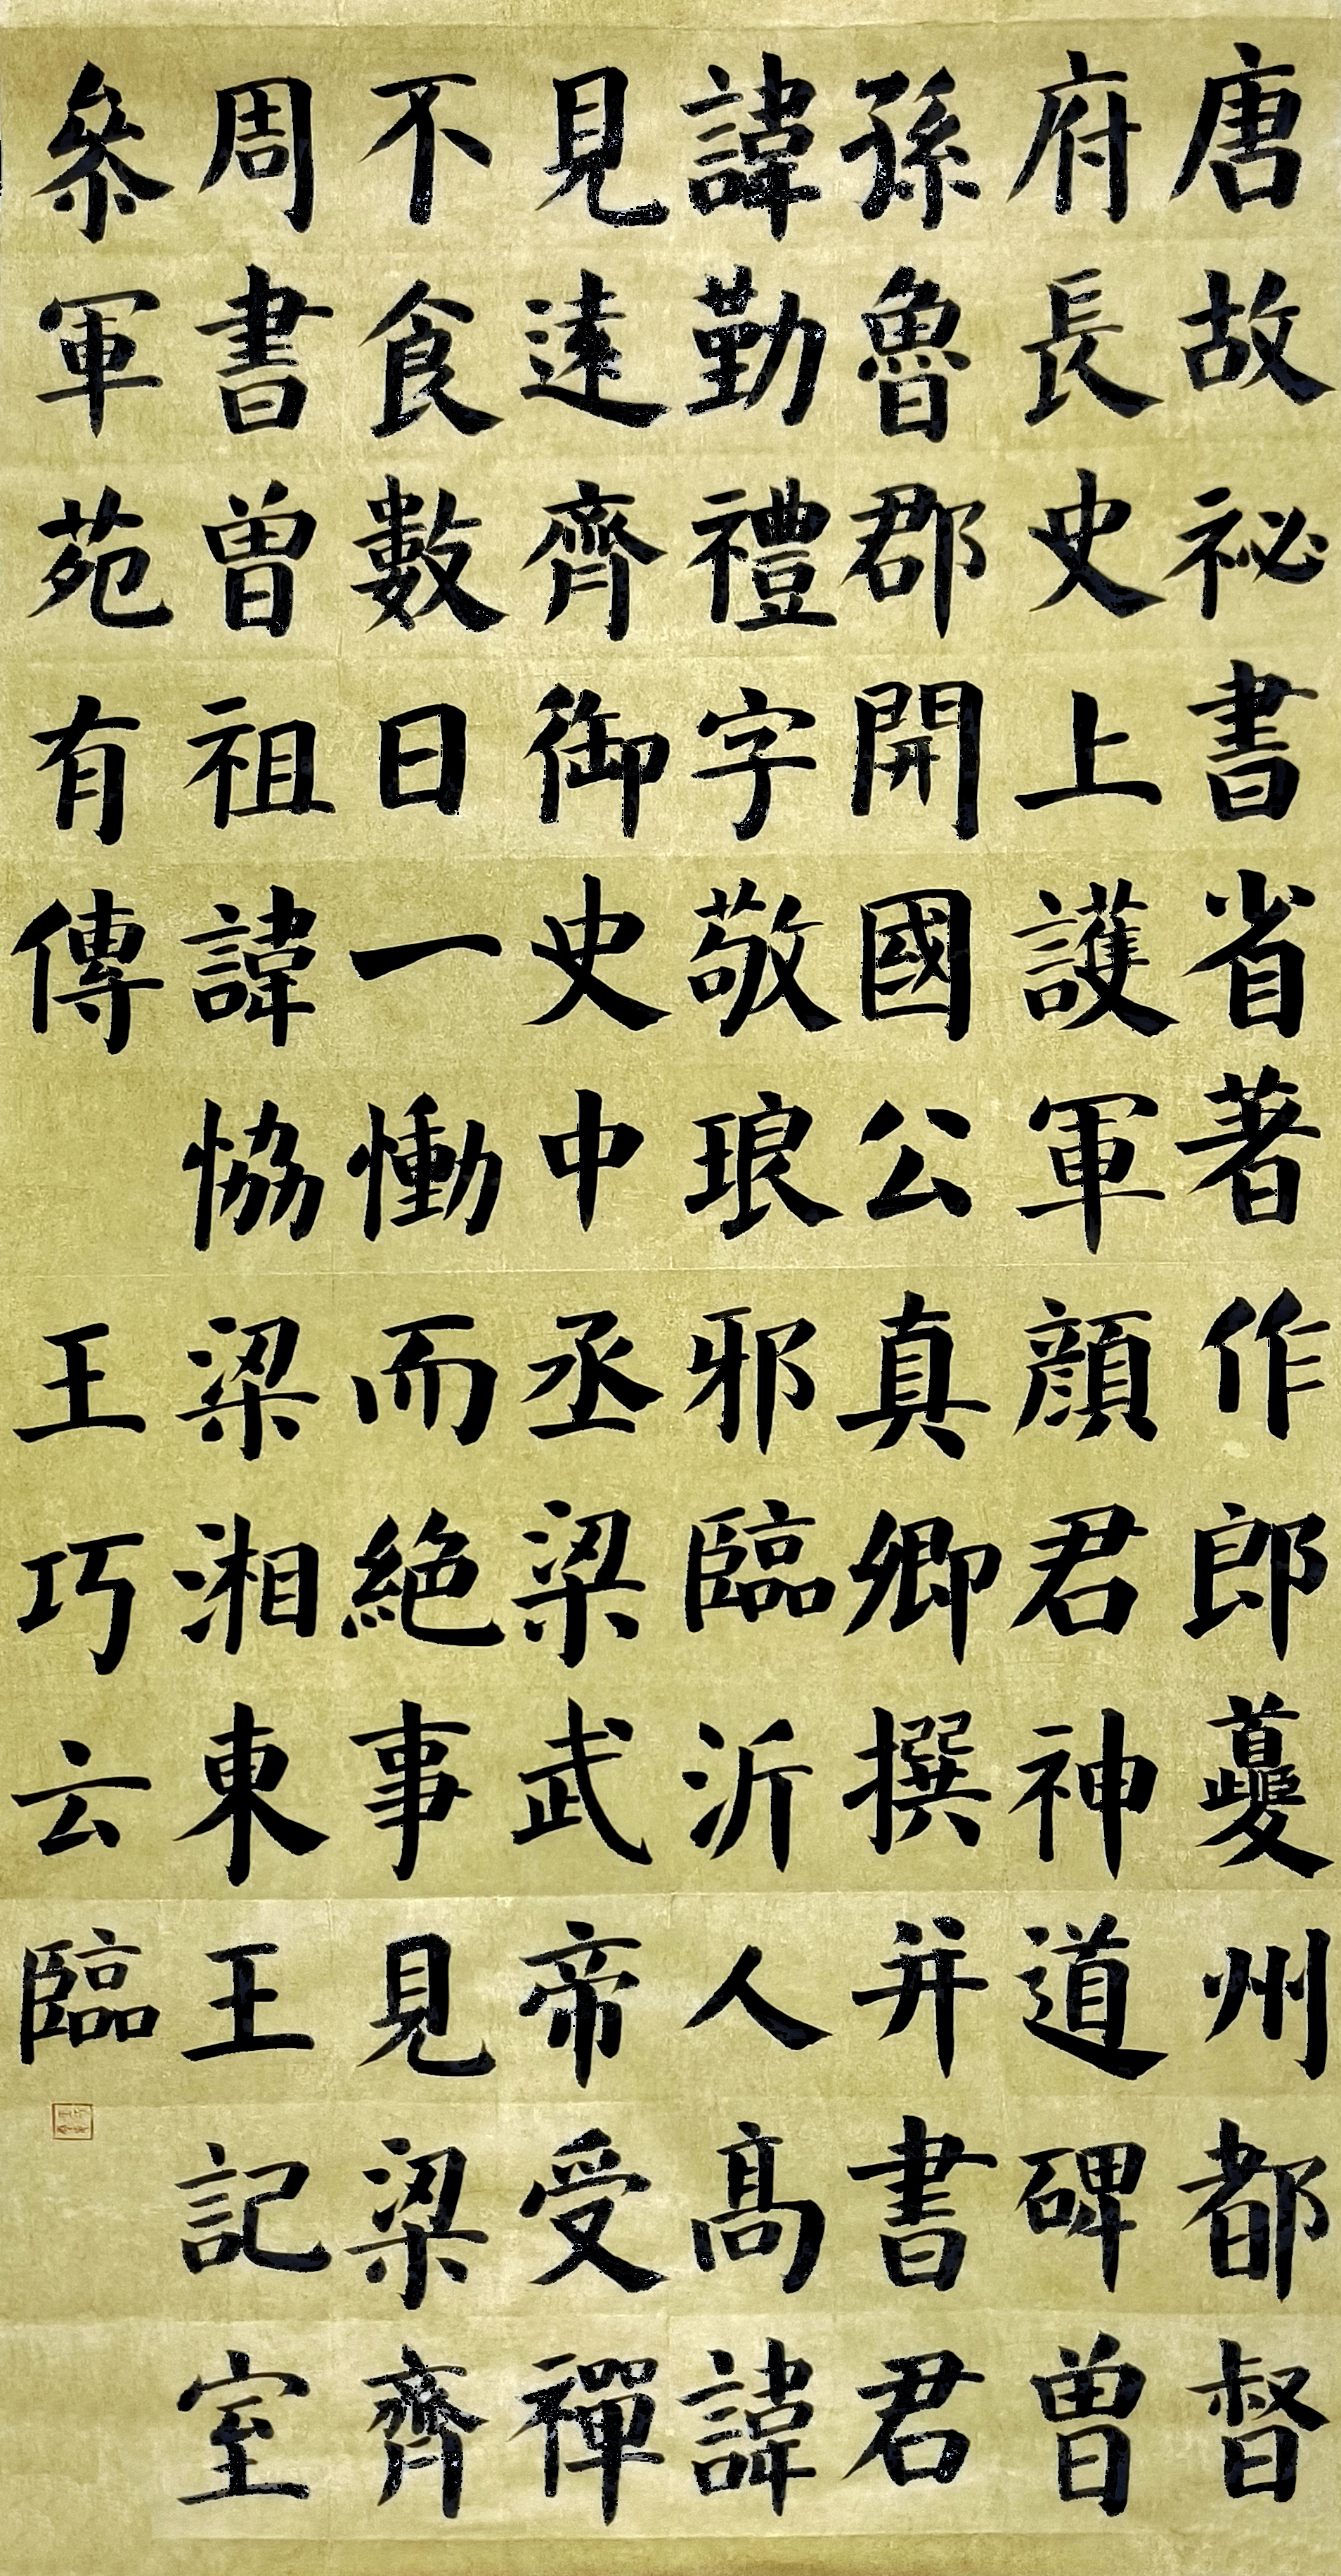 唐故祕書省著作郎夔州都督
府長史上護軍顔君神道碑曾
孫魯郡開國公真卿撰并書君
諱勤禮字敬琅邪臨沂人高諱
見遠齊御史中丞梁武帝受禪
不食數日一慟而絕事見梁齊
周書曾祖諱恊梁湘東王記室
叅軍苑有傳
王巧云臨